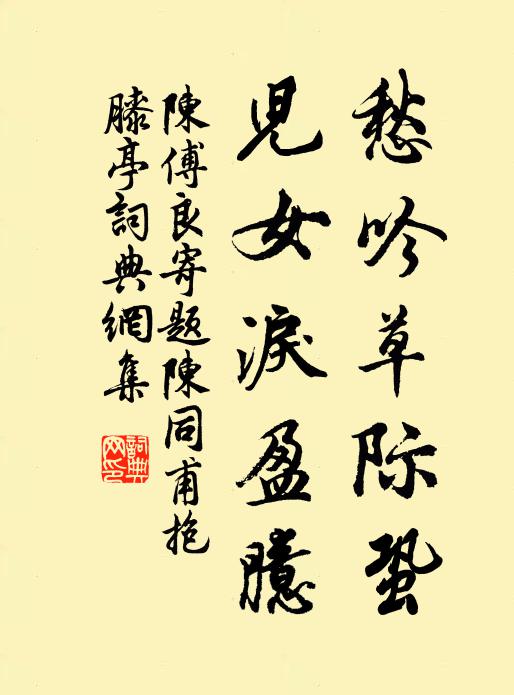 愁吟草际蛩
児女淚盈臆
陳傅良寄題陳同甫抱
膝亭詞典網集
詞典
网印